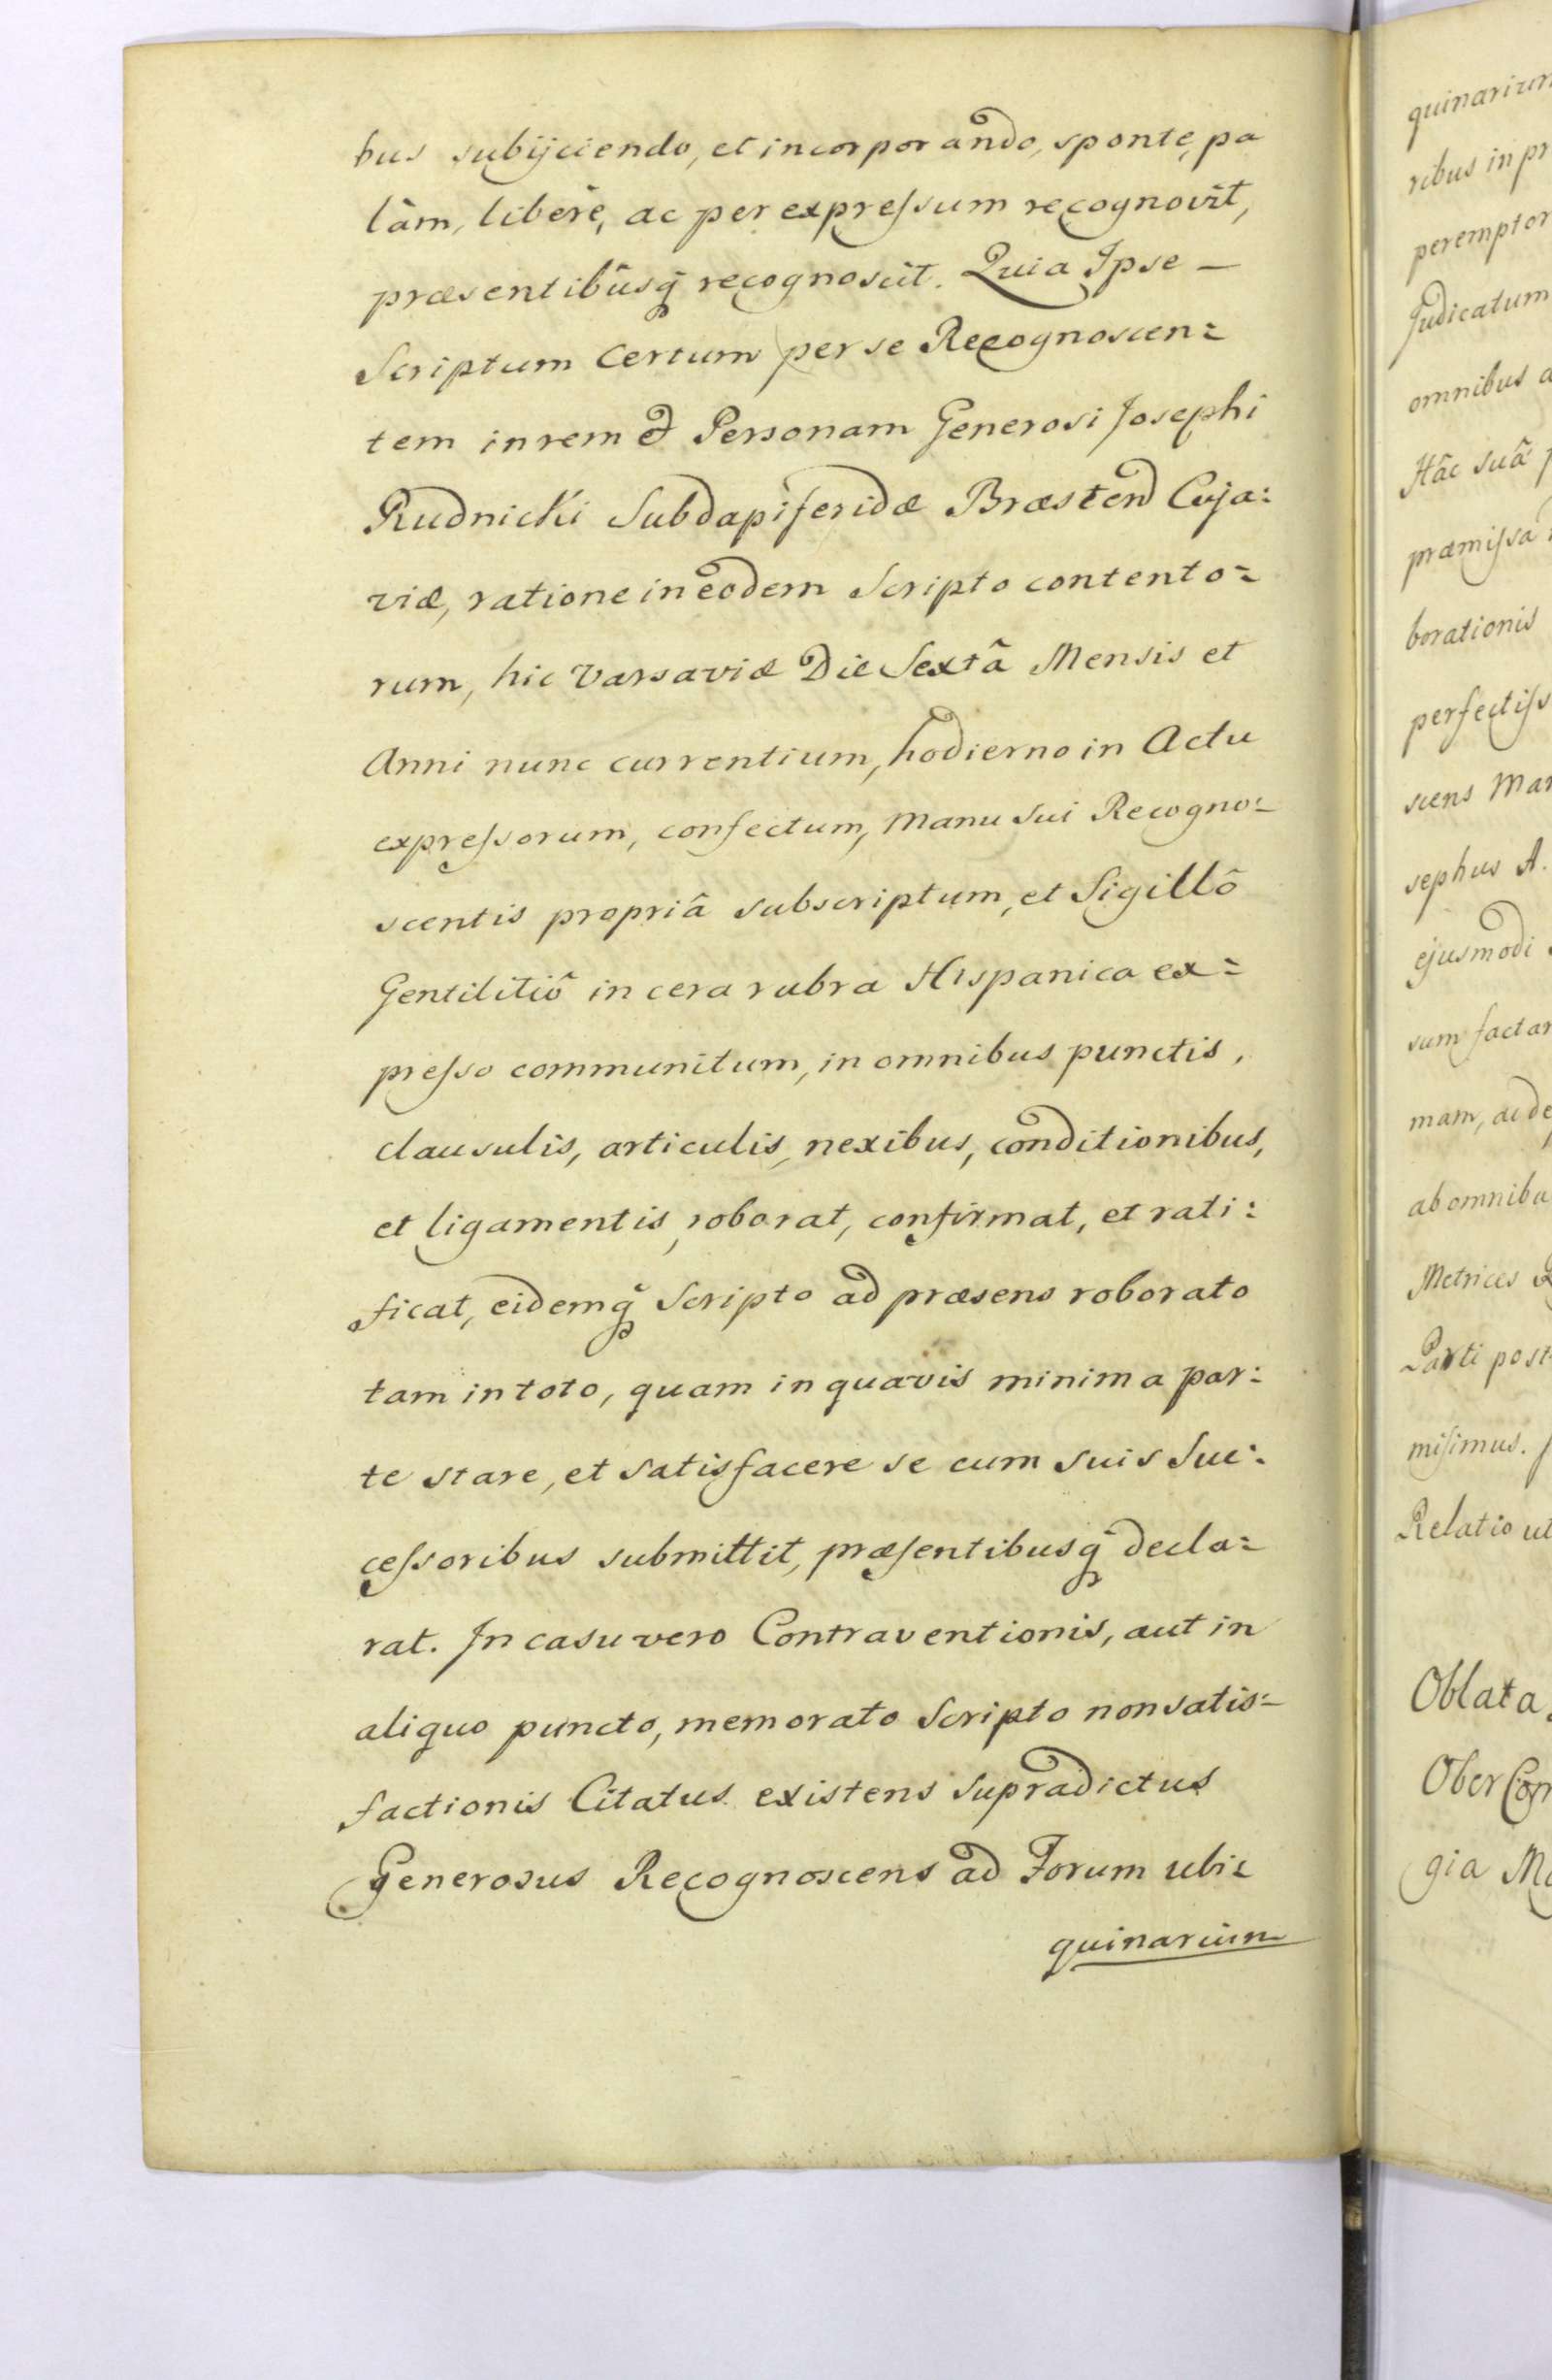 bus subijciendo, et incorporando, sponte, pa
lâm, liberè, ac per expreſsum recognovit,
præsentibûsq̃ recognoscit. Quia Ipse —
Scriptum Certum per se Recognoscen=
tem in rem & Personam Generosi Josephi
Rudnicki Subdapiferidæ Bræsten Cuja:
viæ, ratione in eodem Scripto contento=
rum, hic Varsaviæ Die Sextâ Mensis et
Anni nunc currentium, hodierno in Actu
expreſsorum, confectum, Manu Sui Recogno=
scentis propriâ subscriptum, et Sigillô
Gentilitiô in cera rubra Hispanica ex=
preſso communitum, in omnibus punctis,
clausulis, articulis, nexibus, conditionibus,
et ligamentis, roborat, confirmat, et rati:
ficat, eidemq̃ Scripto ad præsens roborato
tam in toto, quam in quavis minima par:
te stare, et satisfacere se cum suis Suc:
ceſsoribus submittit, præſentibusq̃ decla=
rat. In casu vero Contraventionis, aut in
aliquo puncto, memorato Scripto non satis=
factionis Citatus existens supradictus
Generosus Recognoscens ad Forum ubi=
quinarium
quinarium
ribus in pr
peremptor
Judicatum
omnibus a
Hâc suâ p
præmiſsa
borationis
perfectiſs
scens Mar
sephus A.
ejusmodi
sum factar
mam, ac de
ab omnibu
Metrices
Parti post
misimus.
Relatio ut
Oblata
Ober Com
gia Ma